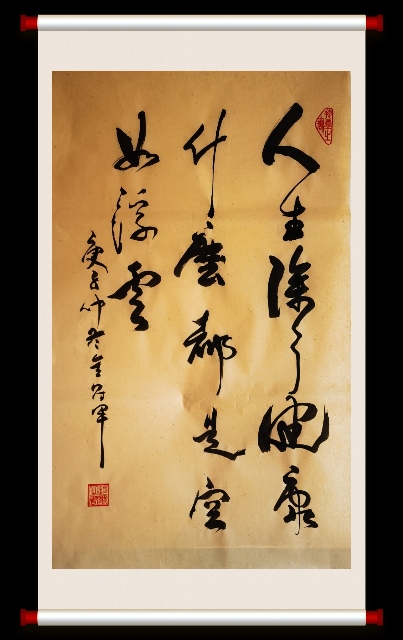 人生除了健康
什麼都是空
如浮雲
庚子仲冬